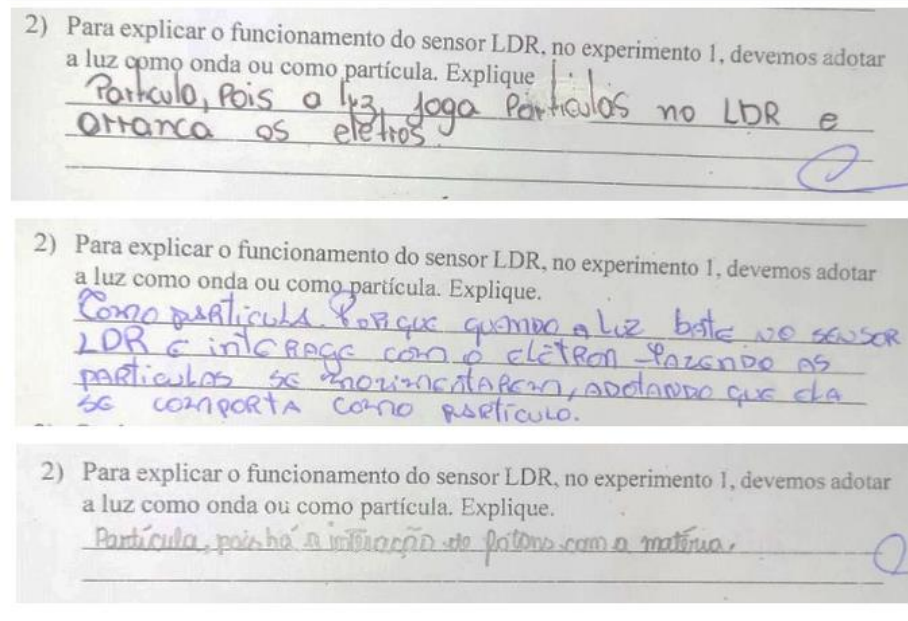 2) Para explicar o funcionamento do sensor LDR, no experimento 1, devemos adotar
a luz como onda ou como partícula. Explique
Particulo, Pois a luz joga Párticulos no LDR e
arranca os eletros.
2) Para explicar o funcionamento do sensor LDR, no experimento 1, devemos adotar
a luz como onda ou como partícula. Explique.
Como particula. Porque quando a luz bate no sensor
LDR e interage com o elétron fazendo as
particulas se movimentarem, adotando que ela
se comporta como particulo.
2) Para explicar o funcionamento do sensor LDR, no experimento 1, devemos adotar
a luz como onda ou como partícula. Explique.
Partícula, pois há a interação do fotons com a matéria.